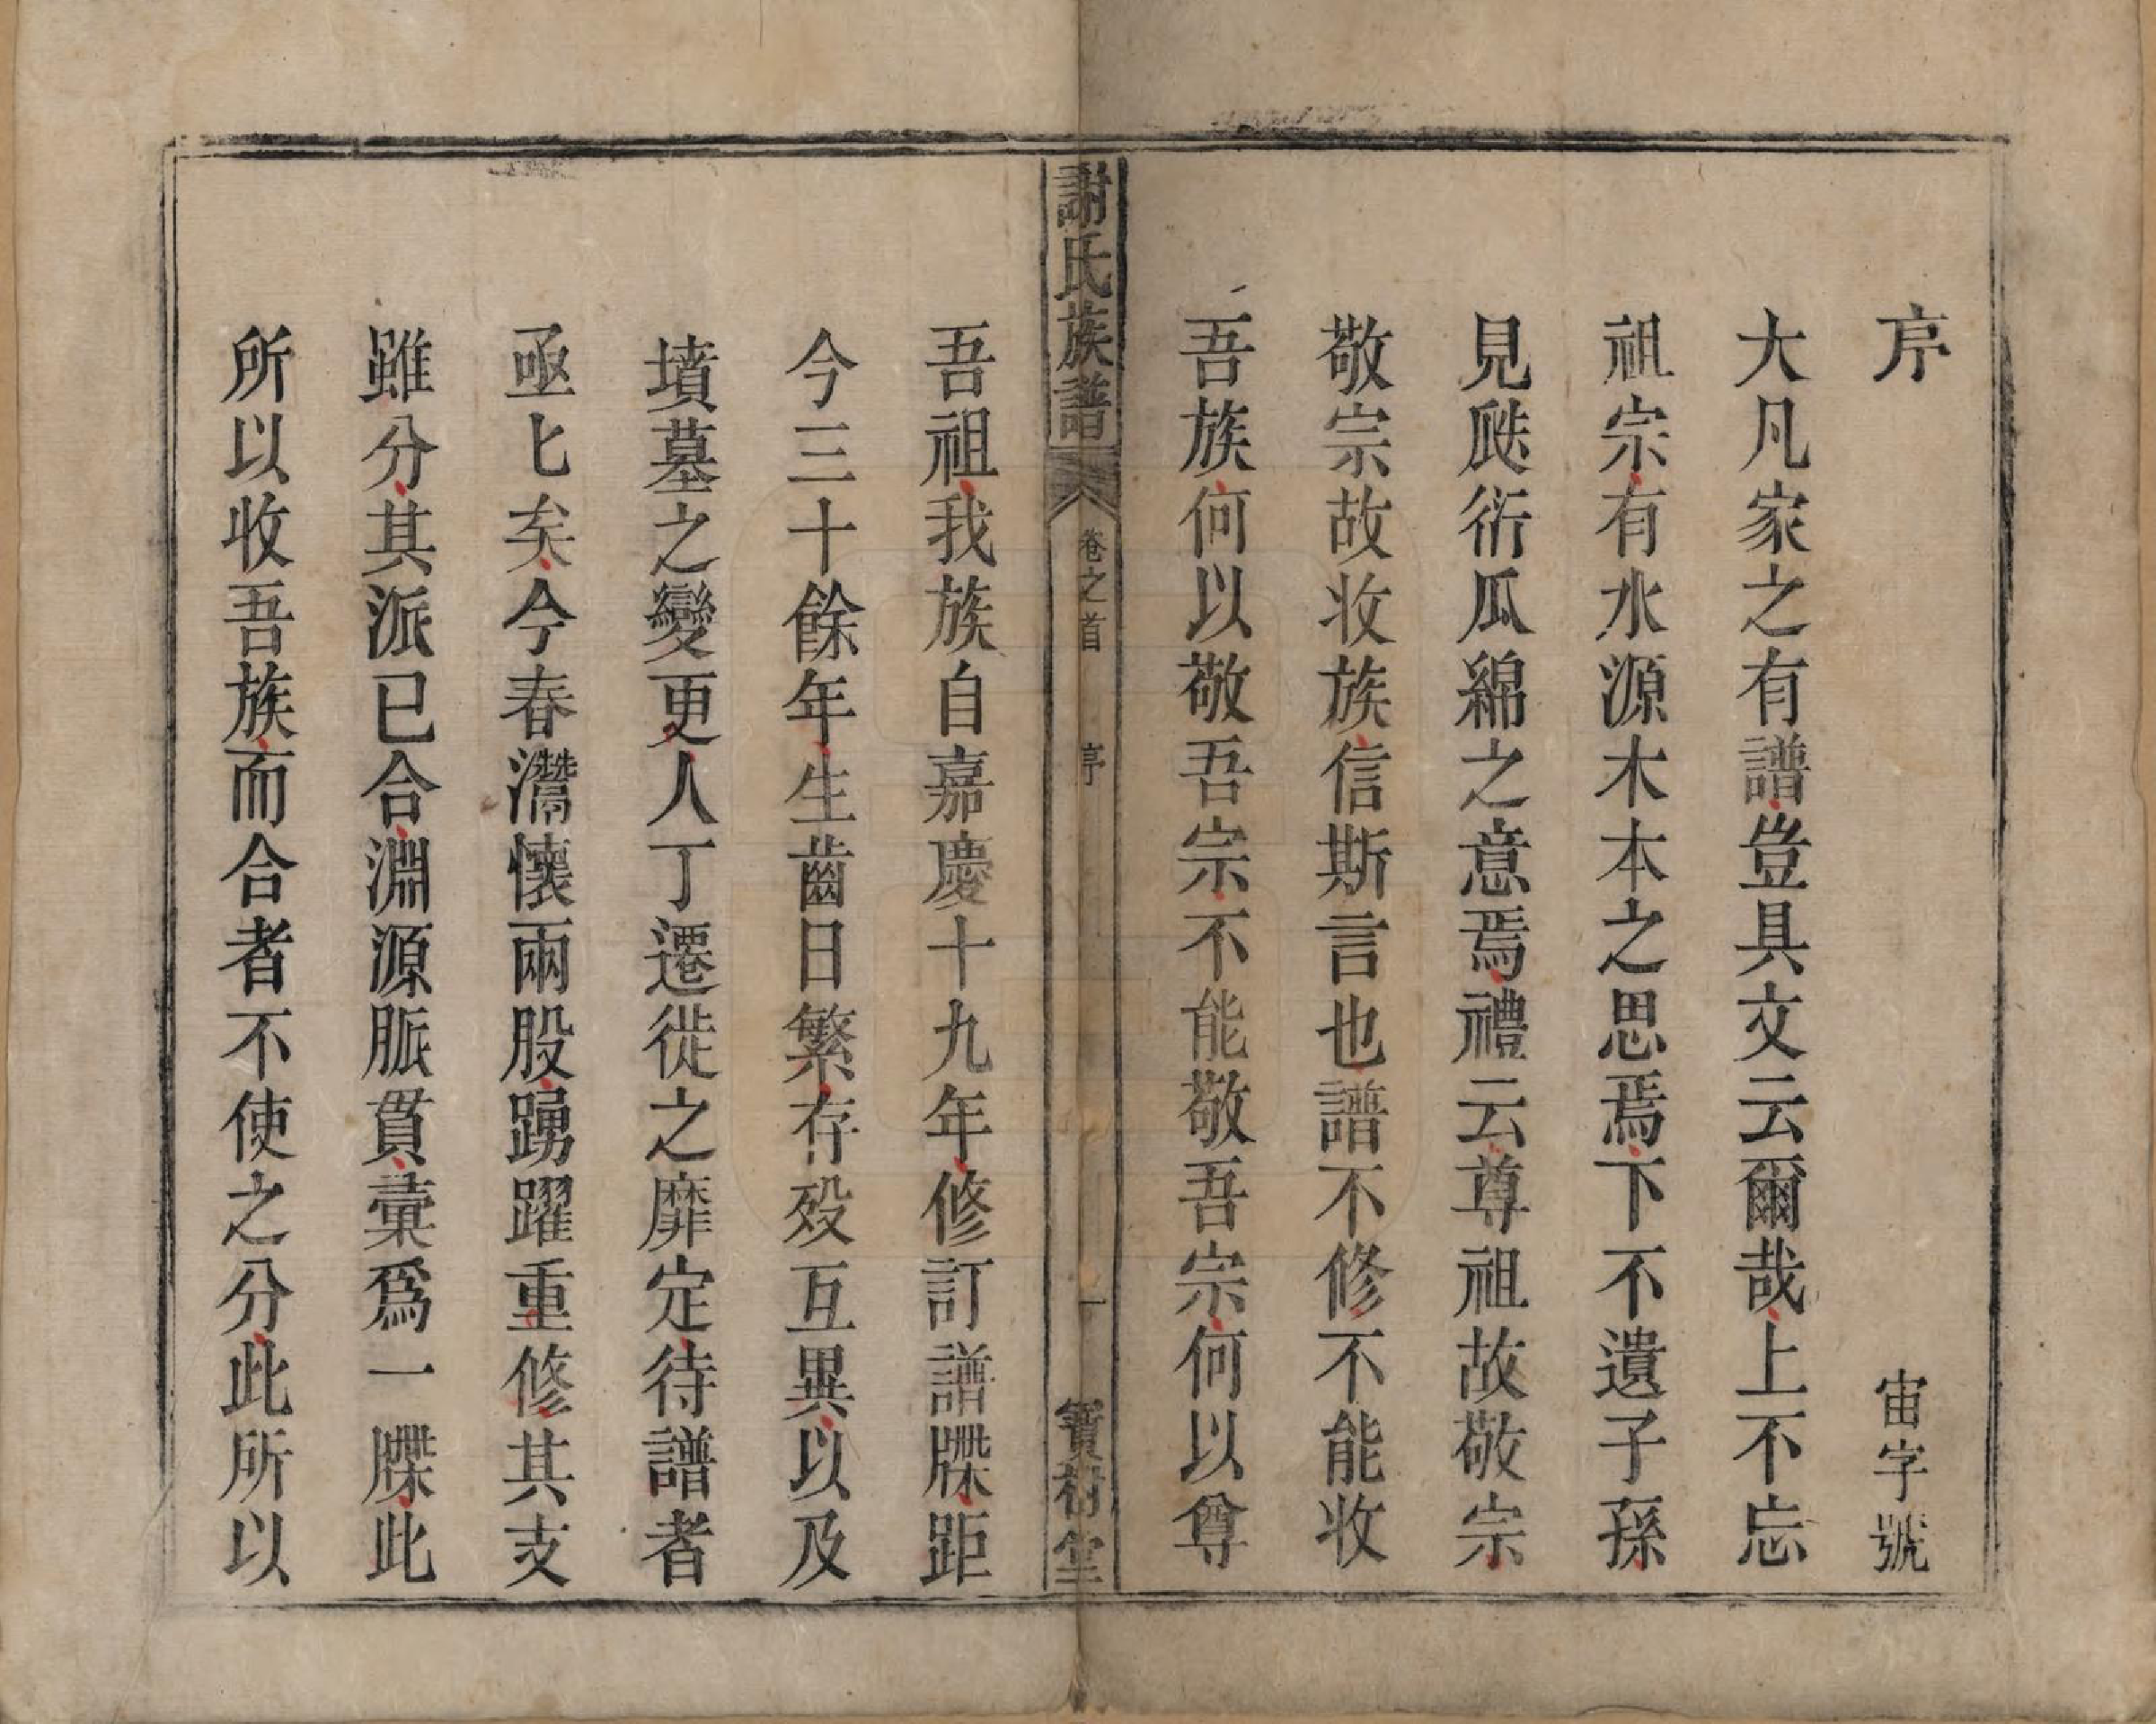 序　宙字號
大凡家之有譜豈具文云爾哉上不忘
祖宗有水源木本之思焉下不遺子孫
見瓞衍瓜綿之意焉禮云尊祖故敬宗
敬宗故收族信斯言也譜不修不能收
吾族何以敬吾宗不能敬吾宗何以尊
謝氏族譜　卷之首　序　一　寶樹堂
吾祖我族自嘉慶十九年修訂譜牒距
今三十餘年生齒日繁存歿互異以及
墳墓之變更人丁遷徙之靡定待譜者
亟匕矣今春灊懷兩股踴躍重修其支
雖分其派已合淵源脈貫彙爲一牒此
所以收吾族而合者不使之分此所以